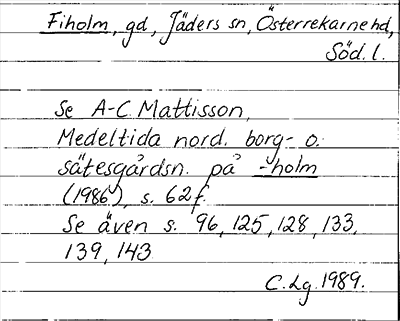 Fiholm, gd, Jäders sn, Österrekarne hd,
Söd. l.
Se A-C. Mattisson,
Medeltida nord. borg- o.
sätesgårdsn. på -holm
(1986), s. 62 f.
Se även s. 96, 125, 128, 133,
139, 143
C. Lg. 1989.